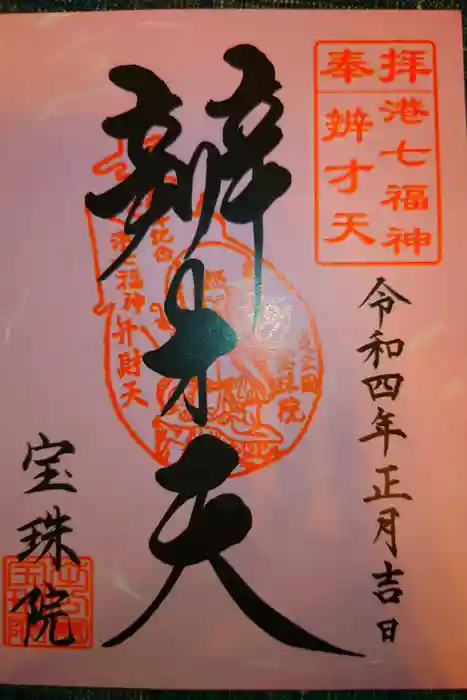 奉拝
港七福神
辨才天
令和四年正月吉日
辨才天
港七福神弁財天
宝珠院